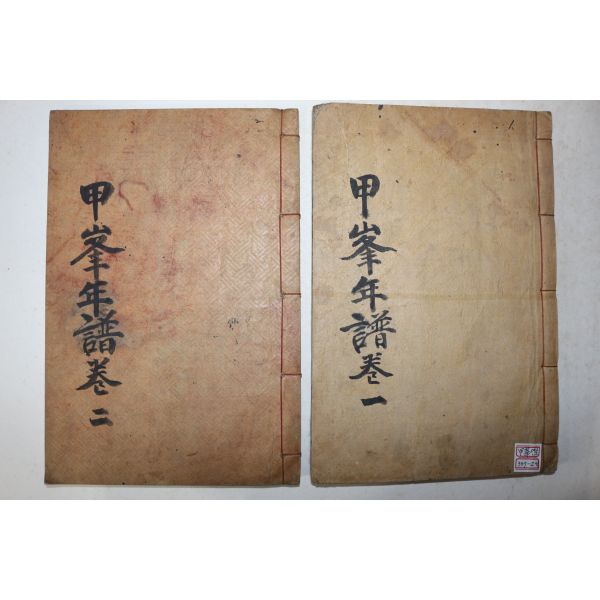 甲峯年譜卷一
甲峯年譜卷二